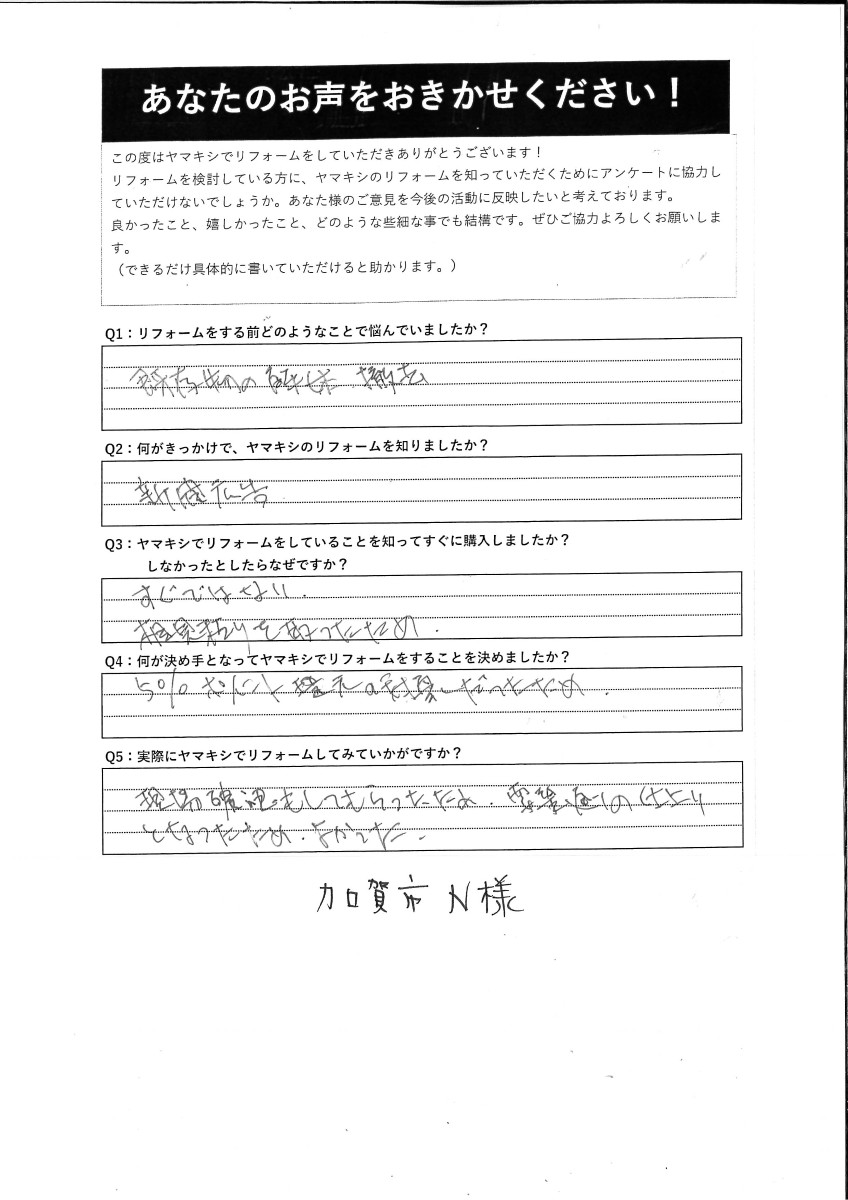 あなたのお声をおきかせください！
この度はヤマキシでリフォームをしていただきありがとうございます！
リフォームを検討している方に、ヤマキシのリフォームを知っていただくためにアンケートに協力し
ていただけないでしょうか。あなた様のご意見を今後の活動に反映したいと考えております。
良かったこと、嬉しかったこと、どのような些細な事でも結構です。ぜひご協力よろしくお願いしま
す。
（できるだけ具体的に書いていただけると助かります。）
Q1：リフォームをする前どのようなことで悩んでいましたか？
の解体 撤去
Q2：何がきっかけで、ヤマキシのリフォームを知りましたか？
新聞広告
Q3：ヤマキシでリフォームをしていることを知ってすぐに購入しましたか？
しなかったとしたらなぜですか？
すぐではない.
相見積りを取ったため.
Q4：何が決め手となってヤマキシでリフォームをすることを決めましたか？
5%
だったため.
Q5：実際にヤマキシでリフォームしてみていかがですか？
現場確認もしてもらったため.
となったため.よかった.
加賀市 N様